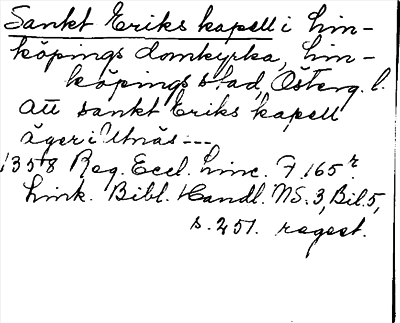 Sankt Eriks kapell i Lin-
köpings domkyrka, Lin-
köpings stad, Österg. l.
Att sankt Eriks kapell
äger i Utnäs ---
1358 Reg. Eccl. Linc. F. 165r.
Link. Bibl. Handl. NS. 3, Bil. 5,
s. 251. regest.